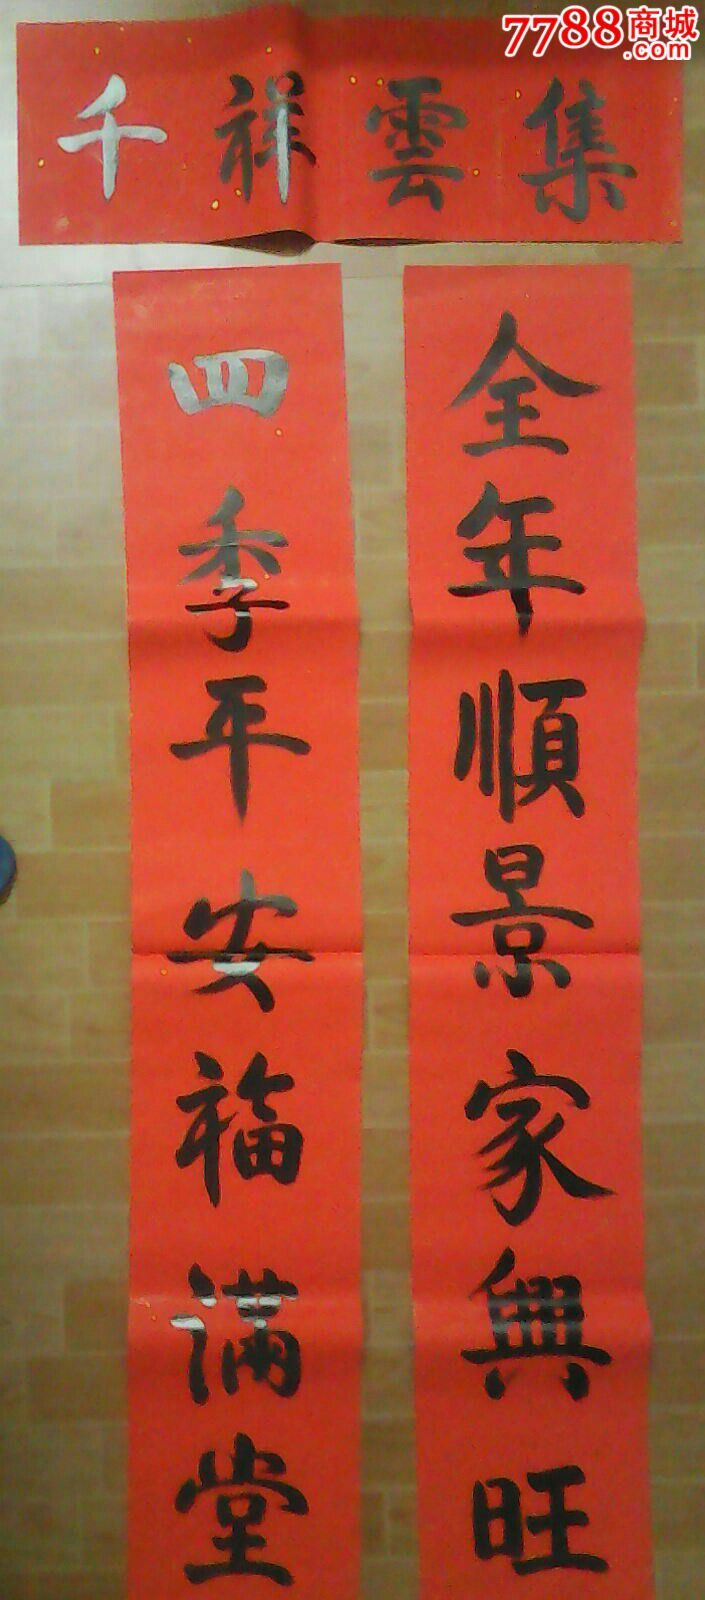 7788商城
.com
千祥雲集
全年順景家興旺
四季平安福满堂